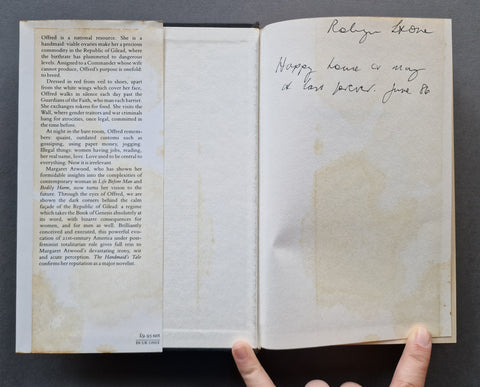 Offred is a national resource. She is a
handmaid: viable ovaries make her a precious
commodity in the Republic of Gilead, where
the birthrate has plummeted to dangerous
levels. Assigned to a Commander whose wife
cannot produce, Offred's purpose is onefold:
to breed.
Dressed in red from veil to shoes, apart
from the white wings which cover her face,
Offred walks in silence each day past the
Guardians of the Faith, who man each barrier.
She exchanges tokens for food. She visits the
Wall, where gender traitors and war criminals
hang for atrocities, once legal, committed in
the time before.
At night in the bare room, Offred remem-
bers: quaint, outdated customs such as
gossiping, using paper money, jogging.
Illegal things: women having jobs, reading,
her real name, love. Love used to be central to
everything. Now it is irrelevant.
Margaret Atwood, who has shown her
formidable insights into the complexities of
contemporary woman in Life Before Man and
Bodily Harm, now turns her vision to the
future. Through the eyes of Offred, we are
shown the dark corners behind the calm
façade of the Republic of Gilead: a regime
which takes the Book of Genesis absolutely at
its word, with bizarre consequences for
women, and for men as well. Brilliantly
conceived and executed, this powerful evo-
cation of 21st-century America under post-
feminist totalitarian rule gives full rein to
Margaret Atwood's devastating irony, wit
and acute perception. The Handmaid's Tale
confirms her reputation as a major novelist.
£9.95 net
IN UK ONLY
Robyn
Happy may
it last forever. June 86